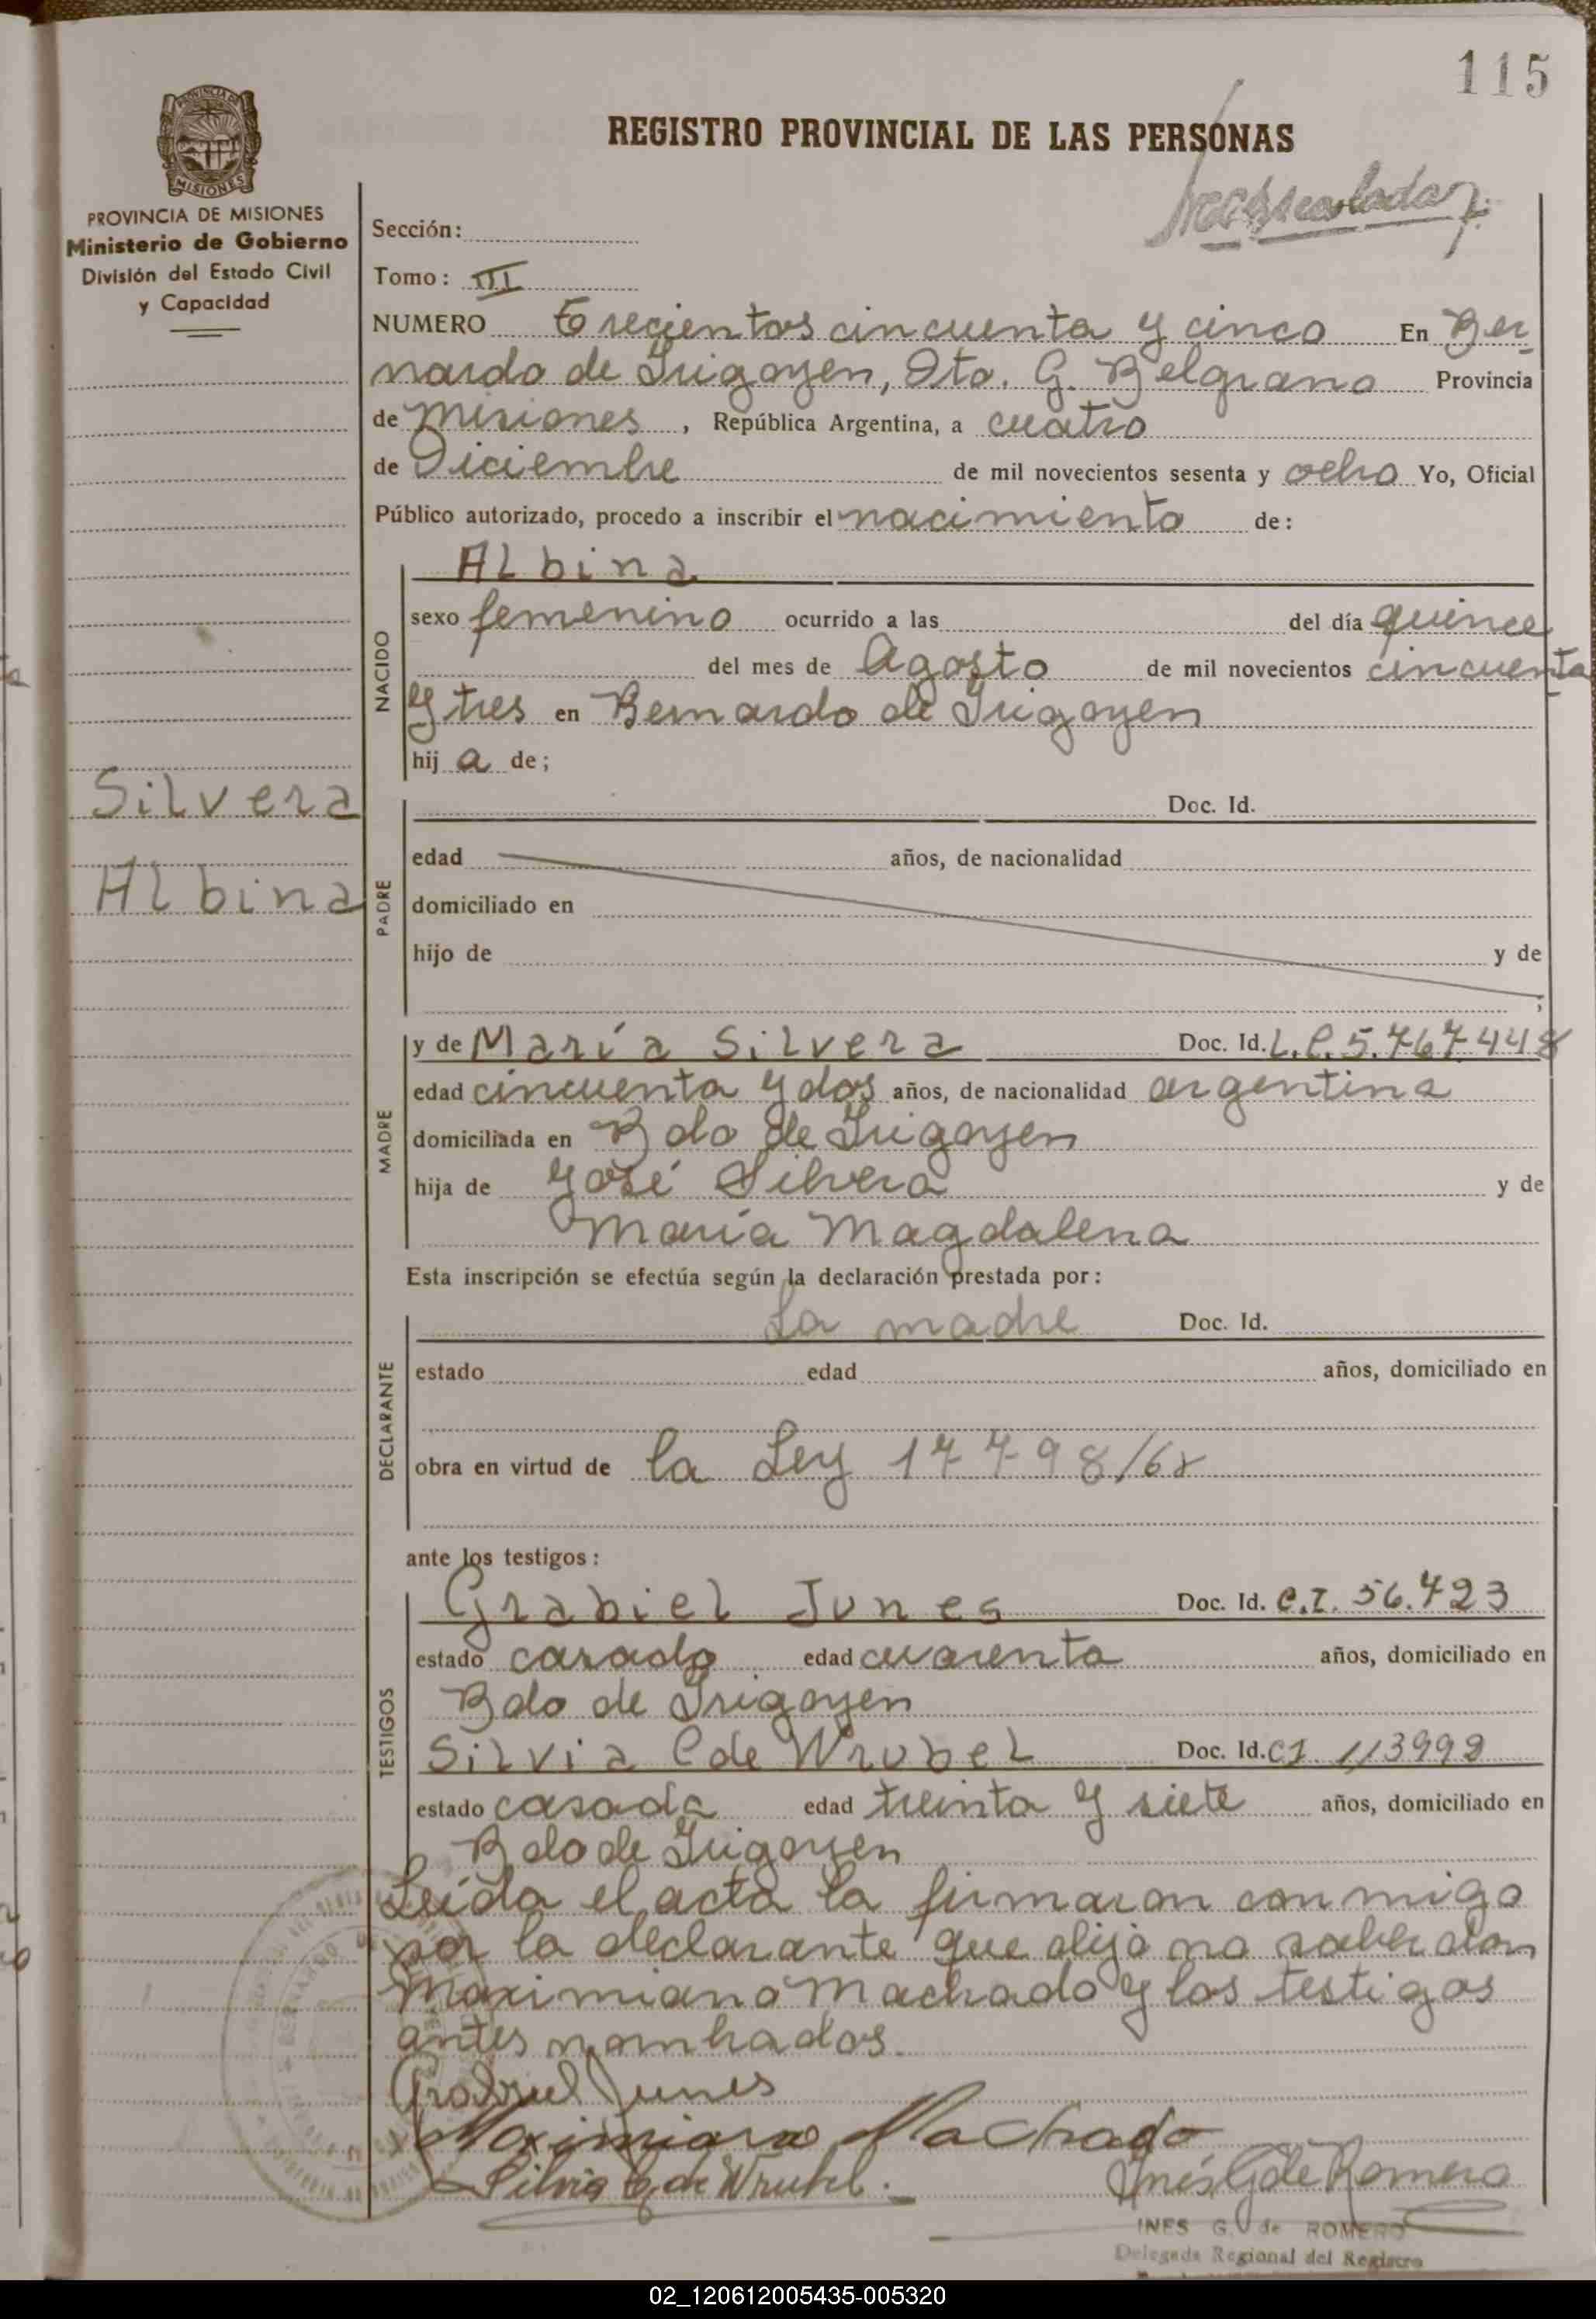 115
REGISTRO PROVINCIAL DE LAS PERSONAS
PROVINCIA DE MISIONES
Ministerio de Gobierno
División del Estado Civil
y Capacidad
Sección:
Tomo: III
NUMERO Trecientos cincuenta y cinco En Ber
nardo de Irigoyen, Dto. G. Belgrano Provincia
de Misiones, República Argentina, a cuatro
de Diciembre de mil novecientos sesenta y ocho Yo, Oficial
Público autorizado, procedo a inscribir el nacimiento de:
NACIDO
Albina
sexo femenino ocurrido a las del día quince
del mes de Agosto de mil novecientos cincuenta
y tres en Bernardo de Irigoyen
hij a de;
Silvera
Albina
PADRE
Doc. Id.
edad años, de nacionalidad
domiciliado en
hijo de y de
;
MADRE
y de María Silvera Doc. Id. L.C. 5.767.448
edad cincuenta y dos años, de nacionalidad argentina
domiciliada en Bdo de Irigoyen
hija de José Silvera y de
María Magdalena
Esta inscripción se efectúa según la declaración prestada por:
DECLARANTE
La madre Doc. Id.
estado edad años, domiciliado en
obra en virtud de la Ley 17798/68
ante los testigos:
TESTIGOS
Grabiel Junes Doc. Id. C.I. 56.723
estado casado edad cuarenta años, domiciliado en
Bdo de Irigoyen
Silvia C de Wrubel Doc. Id. CI. 113999
estado casada edad treinta y siete años, domiciliado en
Bdo de Irigoyen
Leída el acta la firmaron conmigo
por la declarante que dijo no saber don
Maximiano Machado y los testigos
antes nombrados.
Grabriel Junes
Maximiano Machado
Silvia C. de Wrubel.
Inés G de Romero
INES G. de ROMERO
Delegada Regional del Registro
02_120612005435-005320